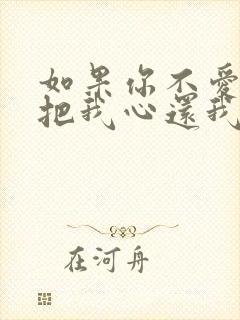 如果你不愛
把我心還我
在河舟